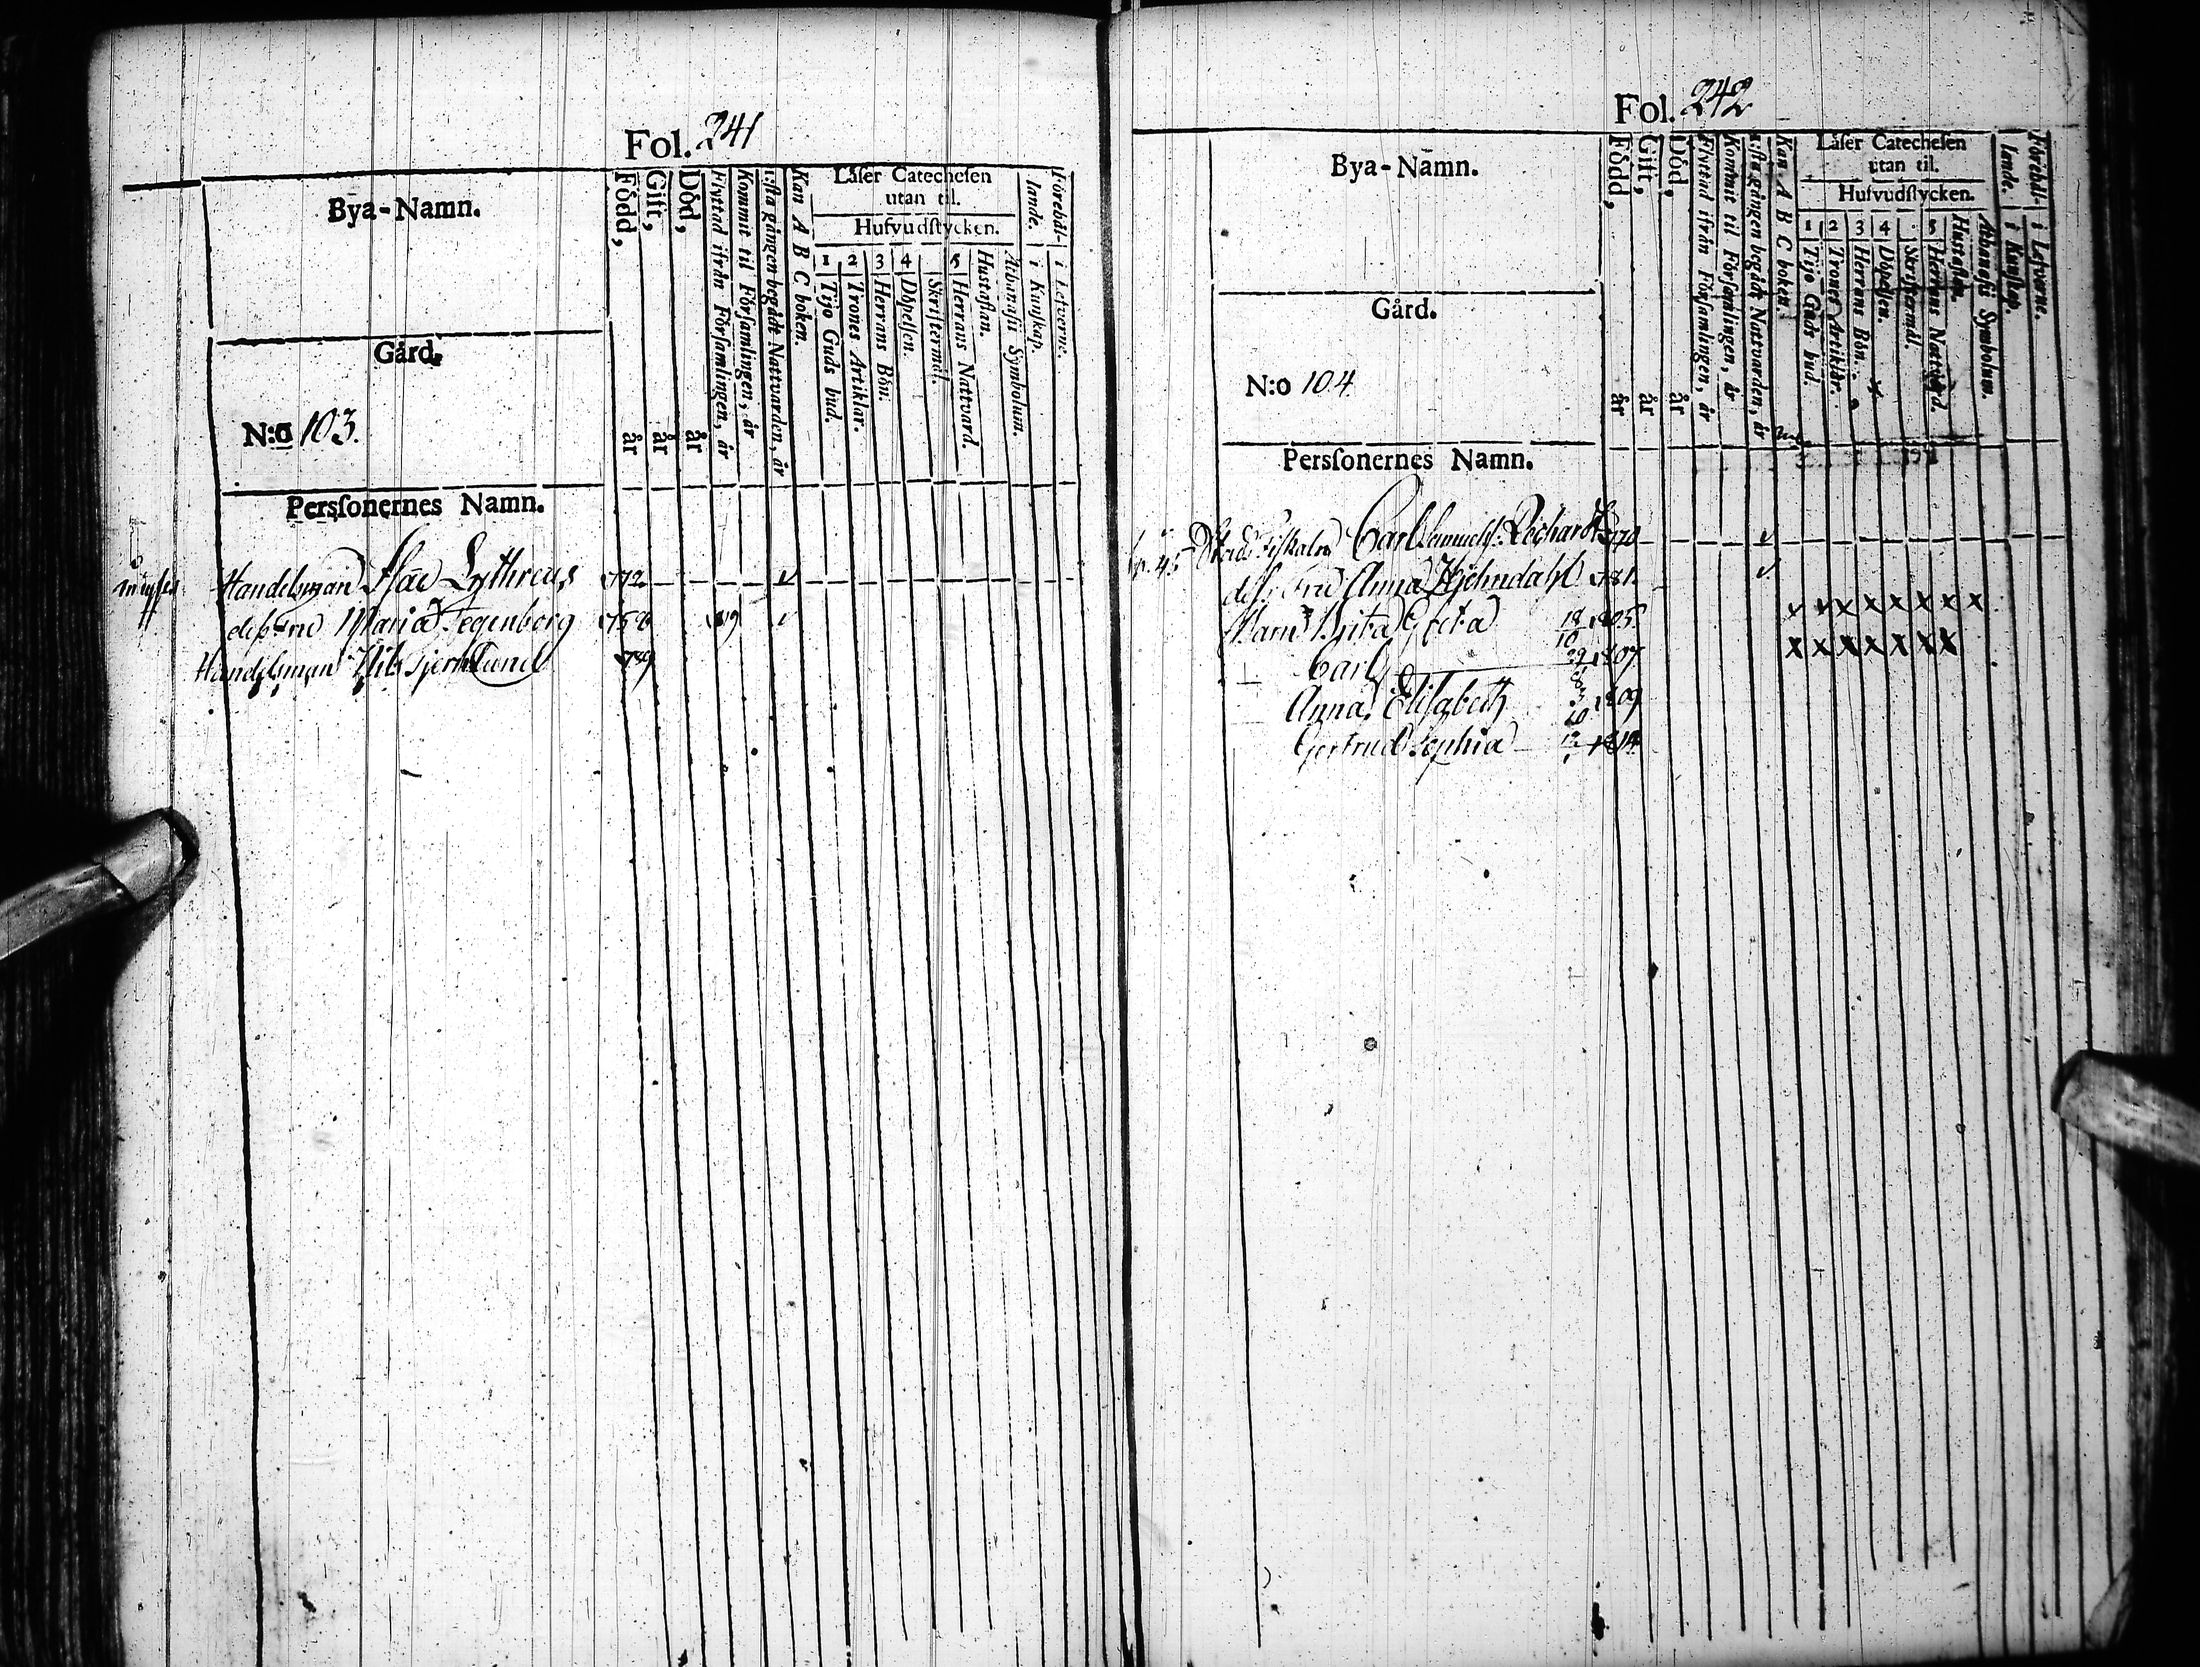 Fol. 241
Bya-Namn.
Född, år
Gift, år
Död, år
Flyttad ifrån Församlingen, år
Kommit til Församlingen, år
1:sta gången begådt Nattvarden, år
Kan A B C boken.
Läser Catechesen
utan til.
Hufvudstycken.
1 Tijo Guds bud.
2 Trones Artiklar.
3 Herrans Bön.
4 Döpelsen.
Skriftermål.
5 Herrans Nattvard.
Hustaflan.
Athanasii Symbolum.
Förehål-
lande.
i Kunskap.
i Lefverne.
Gård.
N:o 103.
Personernes Namn.
Handelsman Isac Lythreus 772
dess Fru Maria Tegenborg 1819
Handelsman Nils
Fol. 242
Bya-Namn.
Född, år
Gift, år
Död, år
Flyttad ifrån Församlingen, år
Kommit til Församlingen, år
1:sta gången begådt Nattvarden, år
Kan A B C boken.
Läser Catechesen
utan til.
Hufvudstycken.
1 Tijo Guds bud.
2 Trones Artiklar.
3 Herrans Bön.
4 Döpelsen.
Skriftermål.
5 Herrans Nattvard.
Hustaflan.
Athanasii Symbolum.
Förehål-
lande.
i Kunskap.
i Lefverne.
Gård.
N:o 104
Personernes Namn.
Stads Fiskalen Carl Samuels: Richardt 1770
dess Fru Anna 1781
Barn Brita Greta 18/10 1805 x x x x x x x x
Carl 1807 x x x x x x x
Anna Elisabeth 1809
Gertrud Sophia 1814